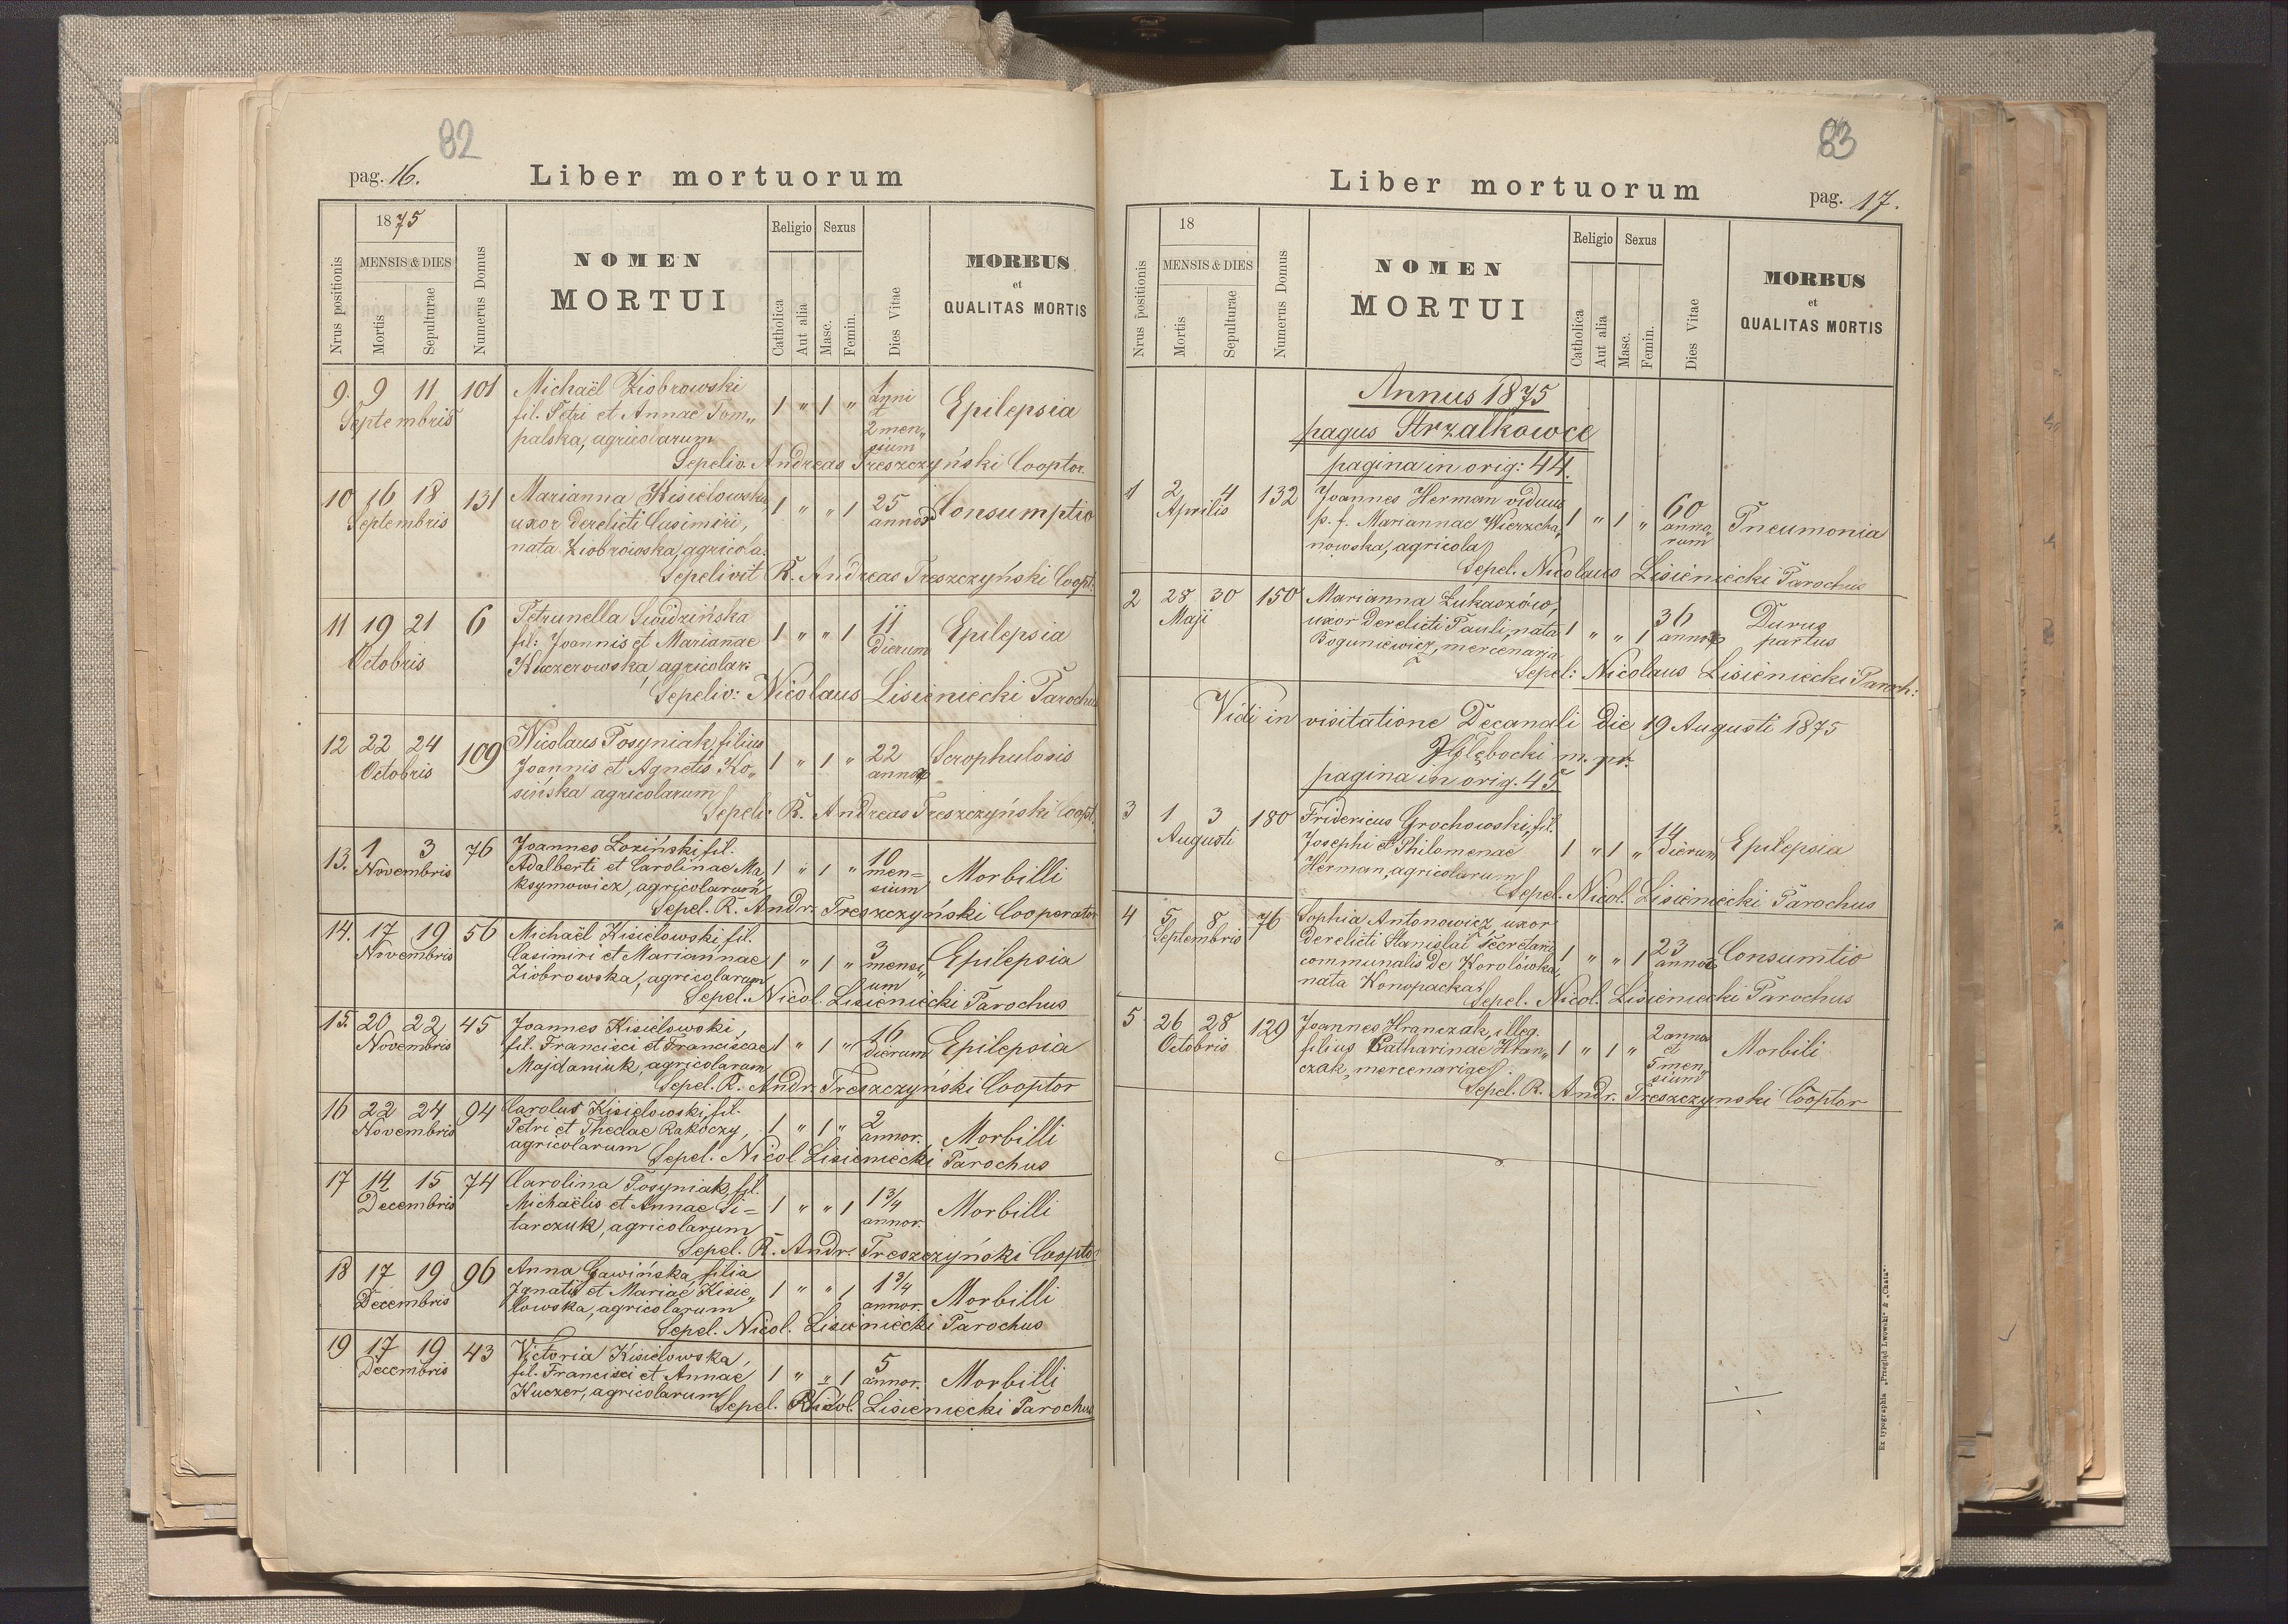 82
pag. 16.
Liber mortuorum
Nrus positionis
1875
MENSIS & DIES
Mortis
Sepulturae
Numerus Domus
NOMEN
MORTUI
Religio
Catholica
Aut alia
Sexus
Masc.
Femin.
Dies Vitae
MORBUS
et
QUALITAS MORTIS
9. 9 11 101 Michaël Ziobrowski 1 " 1 " 1
Septembris fil. Petri et Annae Tom„ anni et Epilepsia
palska, agricolarum 2 men„
sium
Sepeliv. Andreas Treszczyński Cooptor.
10 16 18 131 Marianna Kisielowska, 1 " " 1 25 Consumptio
Septembris uxor derelicti Casimiri, annor
nata Ziobrowska, agricola.
Sepelivit R. Andreas Treszczyński Coopt.
11 19 21 6 Petrunella Swidzińska 1 " " 1 11 Epilepsia
Octobris fil: Joannis et Marianae dierum
Kuczerowska, agricolar:
Sepeliv: Nicolaus Lisieniecki Parochus
12 22 24 109 Nicolaus Posyniak, filius 1 " 1 " 22 Scrophulosis
Octobris Joannis et Agnetis Ko„ annor
sińska agricolarum
Sepel: R. Andreas Treszczyński Coopt.
13. 1 3 76 Joannes Loziński, fil. 1 " 1 " 10 Morbilli
Novembris Adalberti et Carolinae Ma„ men=
ksymowicz, agricolarum sium
Sepel. R. Andr. Treszczyński Cooperator
14. 17 19 56 Michaël Kisielowski, fil. 1 " 1 " 3 Epilepsia
Novembris Casimiri et Mariannae mensi„
Ziobrowska, agricolarum um
Sepel. Nicol. Lisieniecki Parochus
15. 20 22 45 Joannes Kisielowski, 1 " 1 " 16 Epilepsia
Novembris fil. Francisci et Franciscae dierum
Majdaniuk, agricolarum
Sepel. R. Andr. Treszczyński Cooptor
16 22 24 94 Carolus Kisielowski, fil. 1 " 1 " 2 Morbilli
Novembris Petri et Theclae Rakoczy, annor.
agricolarum Sepel. Nicol Lisieniecki Parochus
17 14 15 74 Carolina Posyniak, fil. 1 " " 1 1 3/4 Morbilli
Decembris Michaëlis et Annae Si= annor.
tarczuk, agricolarum
Sepel. R. Andr. Treszczyński Coopto
18 17 19 96 Anna Gawińska filia 1 " " 1 1 3/4 Morbilli
Decembris Ignatii et Mariae Kisie„ annor.
lowska, agricolarum
Sepel. Nicol. Lisieniecki Parochus
19 17 19 43 Victoria Kisielowska, 1 " " 1 5 Morbilli
Decembris fil. Francisci et Annae annor.
Kuczer, agricolarum
Sepel. Nicol. Lisieniecki Parochus
83
Liber mortuorum
pag. 17.
Nrus positionis
18
MENSIS & DIES
Mortis
Sepulturae
Numerus Domus
NOMEN
MORTUI
Religio
Catholica
Aut alia
Sexus
Masc.
Femin.
Dies Vitae
MORBUS
et
QUALITAS MORTIS
Annus 1875
pagus Strzalkowce
pagina in orig: 44.
1 2 4 132 Joannes Herman viduus 1 " 1 " 60 Pneumonia
Aprilis p. f. Mariannae Wierzcha„ anno„
nowska, agricola rum
Sepel. Nicolaus Lisieniecki Parochus
2 28 30 150 Marianna Łukaszów, 1 " " 1 36 Durus
Maji uxor derelicti Pauli, nata annor partus
Boguniewicz, mercenaria
Sepel: Nicolaus Lisieniecki Paroch:
Vidi in visitatione Decanali die 19 Augusti 1875
m. pr.
pagina in orig. 45.
3 1 3 180 Fridericus Grochowski, fil. 1 " 1 " 14 Epilepsia
Augusti Josephi et Philomenae dierum
Herman, agricolarum
Sepel. Nicol. Lisieniecki Parochus
4 5 8 76 Sophia Antonowicz uxor 1 " " 1 23 Consumtio
Septembris derelicti Stanislai secretarii annor
communalis de Korolówka,
nata Konopacka
Sepel. Nicol. Lisieniecki Parochus
5 26 28 129 Joannes Hranczak, illeg. 1 " 1 " 2 anno Morbili
Octobris filius Catharinae Hran„ et
czak, mercenariae 5 men„
sium
Sepel. R. Andr. Treszczynski Cooptor
Ex typographia „Przegląd Lwowski" & „Chata".